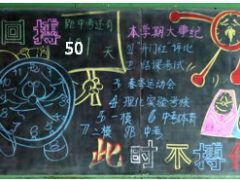 回搏
距中考还有
50天
本学期大事纪
1 开门红 诉化
2 结课考试
3 春季运动会
4 理化实验考核
5 一模 6 中考体育
7 二模 8 中考
此时不搏